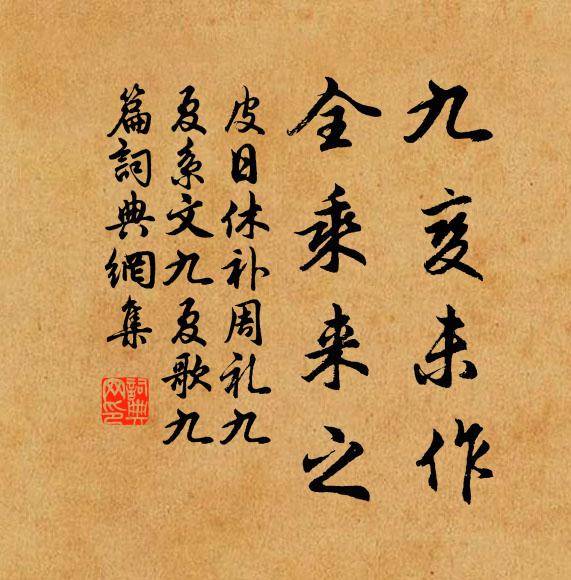 九变未作
全乘来之
皮日休补周礼九
夏系文九夏歌九
篇詞典網集
詞典网印